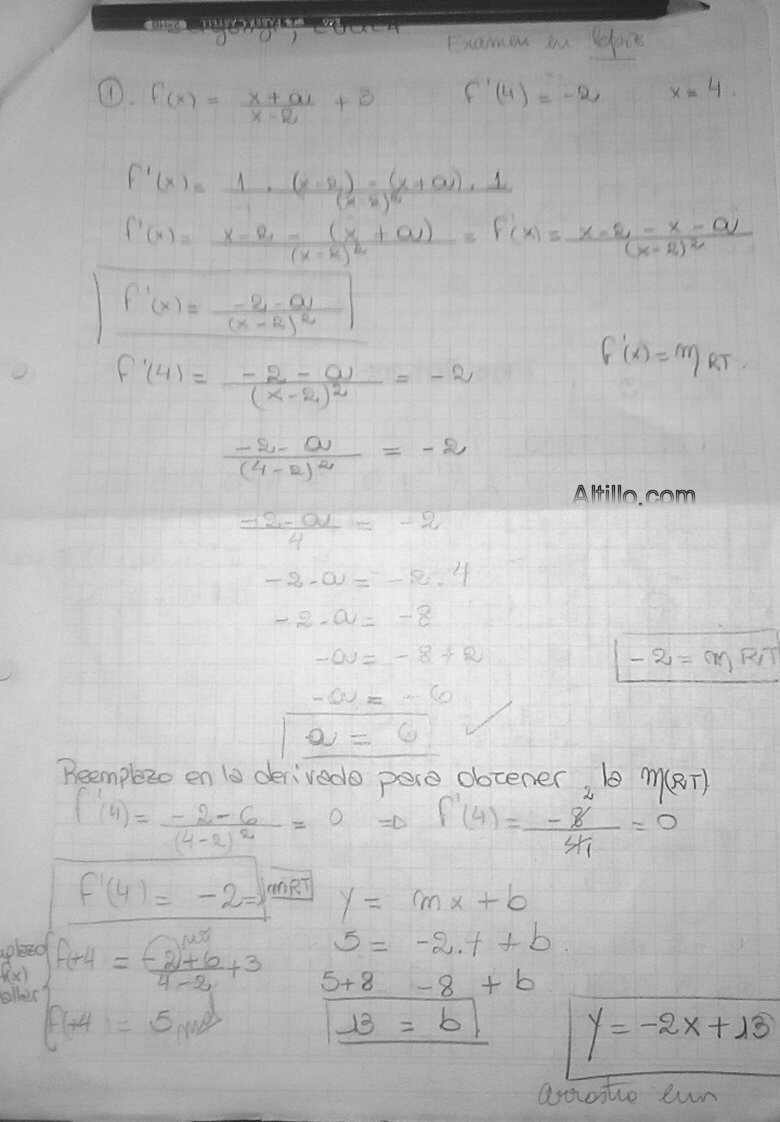 Examen en lápiz
① . f(x) = x + a / x - 2 + 3 f'(4) = -2 x = 4 .
f'(x) = 1 . (x-2) - (x+a) . 1 / (x-2)²
f'(x) = x - 2 - (x + a) / (x-2)² = f'(x) = x - 2 - x - a / (x-2)²
f'(x) = -2 - a / (x-2)²
f'(4) = -2 - a / (x-2)² = -2 f'(x) = m RT .
-2 - a / (4-2)² = -2
Altillo.com
-2 - a / 4 = -2
-2 - a = -2 . 4
-2 - a = -8
-a = -8 + 2 -2 = m RT
-a = -6
a = 6
Reemplazo en la derivada para obtener la m(RT)
f'(4) = -2 - 6 / (4-2)² = 0 ⇒ f'(4) = -8 2 / 4 1 = 0
f'(4) = -2 = mRT y = mx + b
f(+4 = -2+6 / 4-2 + 3 5 = -2 . + + b .
f(x)
5+8 -8 + b
f(+4) = 5
13 = b y = -2x + 13